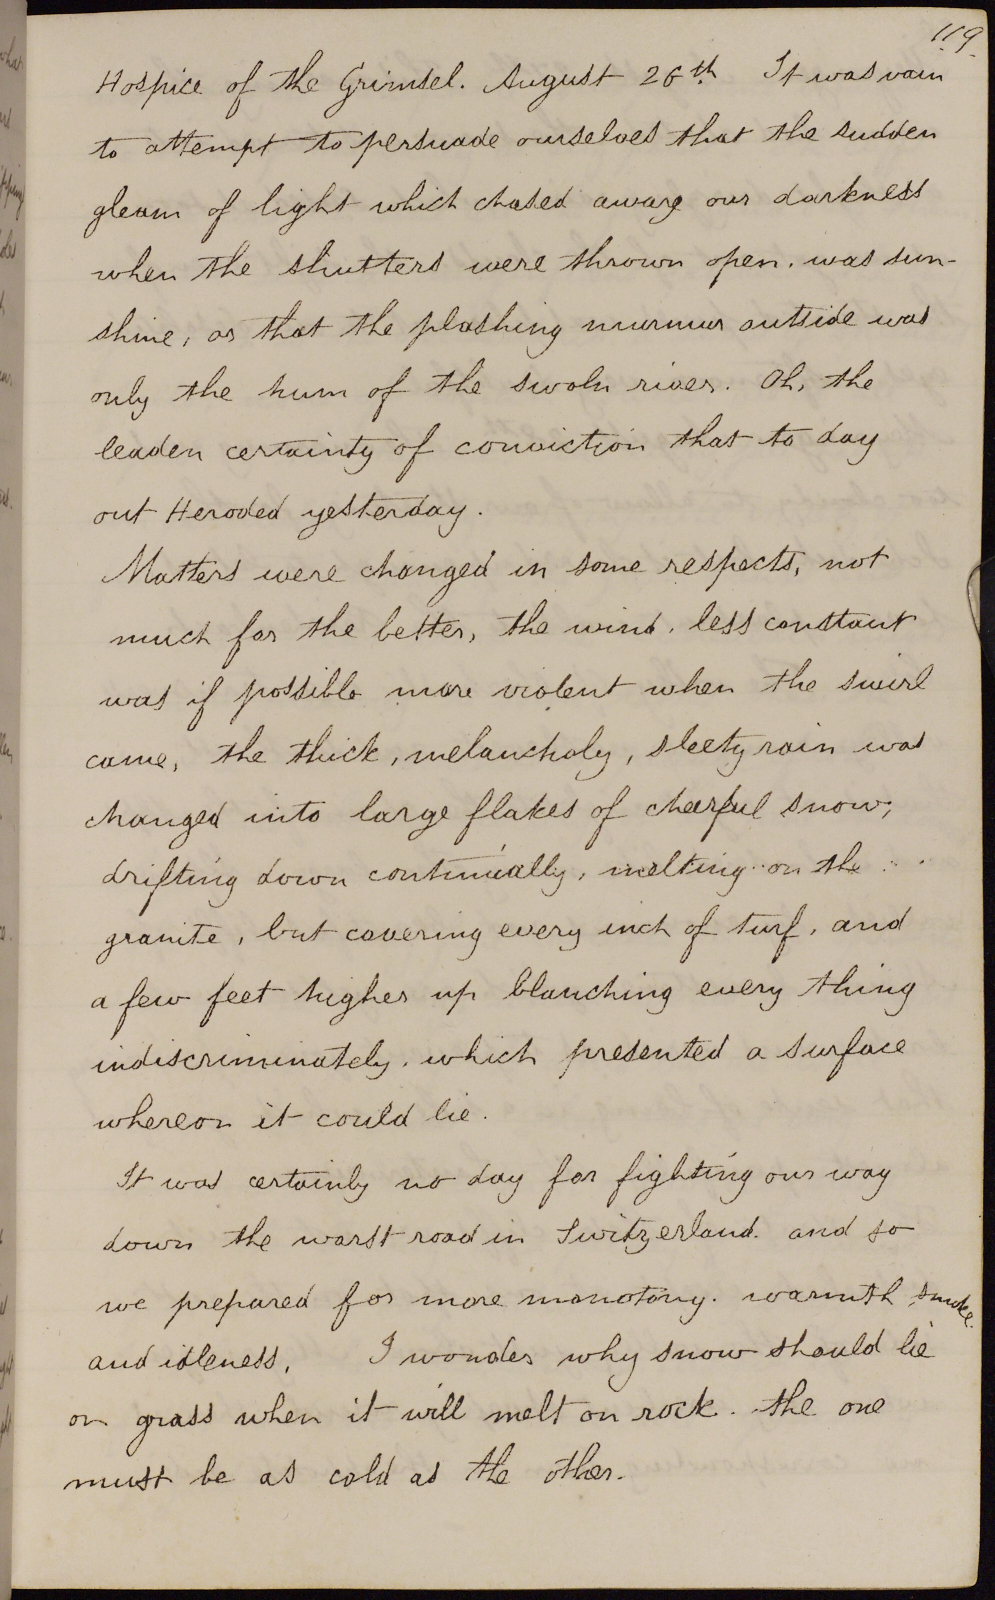 119.
Hospice of the Grimsel. August 26th It was vain
to attempt to persuade ourselves that the sudden
gleam of light which chased away our darkness
when the shutters were thrown open, was sun-
shine, or that the plashing murmur outside was
only the hum of the swoln river. Oh, the
leaden certainty of conviction that to day
out Heroded yesterday.
Matters were changed in some respects, not
much for the better, the wind, less constant
was if possible more violent when the swirl
came, the thick, melancholy, sleety rain was
changed into large flakes of cheerful snow,
drifting down continually, melting on the
granite, but covering every inch of turf, and
a few feet higher up blanching every thing
indiscriminately, which presented a surface
whereon it could lie.
It was certainly no day for fighting our way
down the worst road in Switzerland. and so
we prepared for more monotony. warmth smoke.
and idleness. I wonder why snow should lie
on grass when it will melt on rock. the one
must be as cold as the other.